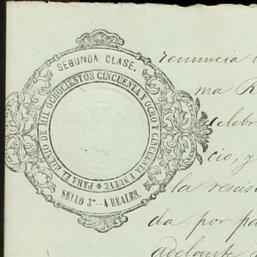 SEGUNDA CLASE.
PARA EL BIENIO DE MIL OCHOCIENTOS CINCUENTA Y OCHO Y CINCUENTA Y NUEVE
SELLO 3º-4 REALES.
renuncia
ma
celebr
cio, y
la resis
da por pa
adelante